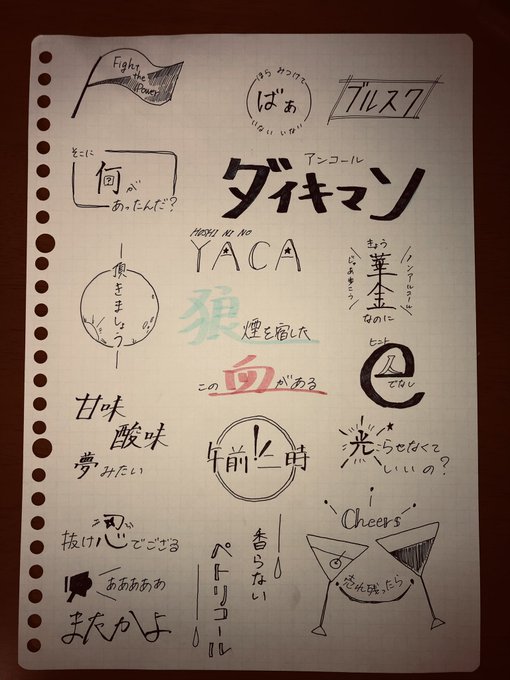 Fight
the
Power
ほら みつけて
ばぁ
いない いない
ブルスク
そこに
何が
あったんだ?
アンコール
ダイキマソ
HOSHI NI NO
YACA
きょう
華金
なのに
じゃあ歩こう
ノンアルコール
頂きましょう
狼煙を宿した
この血がある
ヒント
e
人でなし
甘味
酸味
夢みたい
午前!/二時
光らせなくて
いいの?
抜け忍でござる
ああああああ
またかよ
香らない
ペトリコール
Cheers
売れ残ったら